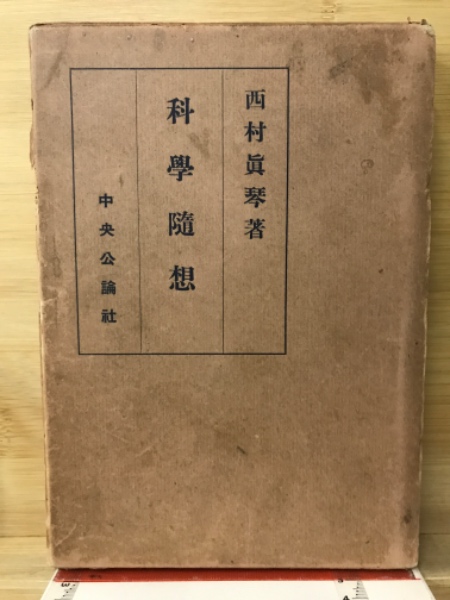 西村眞琴著
科學隨想
中央公論社